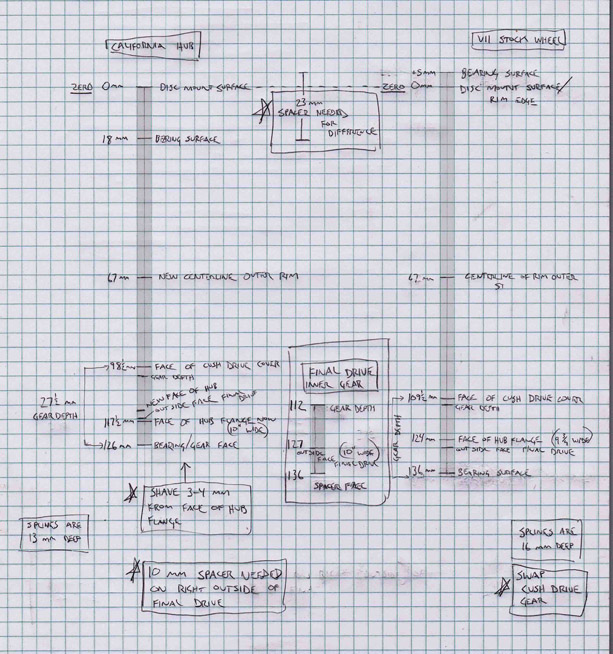 CALIFORNIA HUB
ZERO 0mm DISC MOUNT SURFACE
18 mm BEARING SURFACE
67 mm NEW CENTERLINE OUTER RIM
98½ mm FACE OF CUSH DRIVE COVER
GEAR DEPTH
NEW FACE OF HUB
OUTSIDE FACE FINAL
117½ mm FACE OF HUB FLANGE NOW
(10" WIDE)
126 mm BEARING/GEAR FACE
27½ mm
GEAR DEPTH
SHAVE 3-4 mm
FROM FACE OF HUB
FLANGE
SPLINES ARE
13 mm DEEP
10 mm SPACER NEEDED
ON RIGHT OUTSIDE OF
FINAL DRIVE
23 mm
SPACER NEEDED
FOR
DIFFERENCE
FINAL DRIVE
INNER GEAR
112 GEAR DEPTH
127 OUTSIDE
FACE (10" WIDE)
FINAL DRIVE
136
SPACER FACE
V11 STOCK WHEEL
+5mm BEARING SURFACE
ZERO 0mm DISC MOUNT SURFACE/
RIM EDGE
67 mm CENTERLINE OF RIM OUTER
109½ mm FACE OF CUSH DRIVE COVER
GEAR DEPTH
GEAR DEPTH
124 mm FACE OF HUB FLANGE (9¾ WIDE)
OUTSIDE FACE FINAL DRIVE
136 mm BEARING SURFACE
SPLINES ARE
16 mm DEEP
SWAP
CUSH DRIVE
GEAR